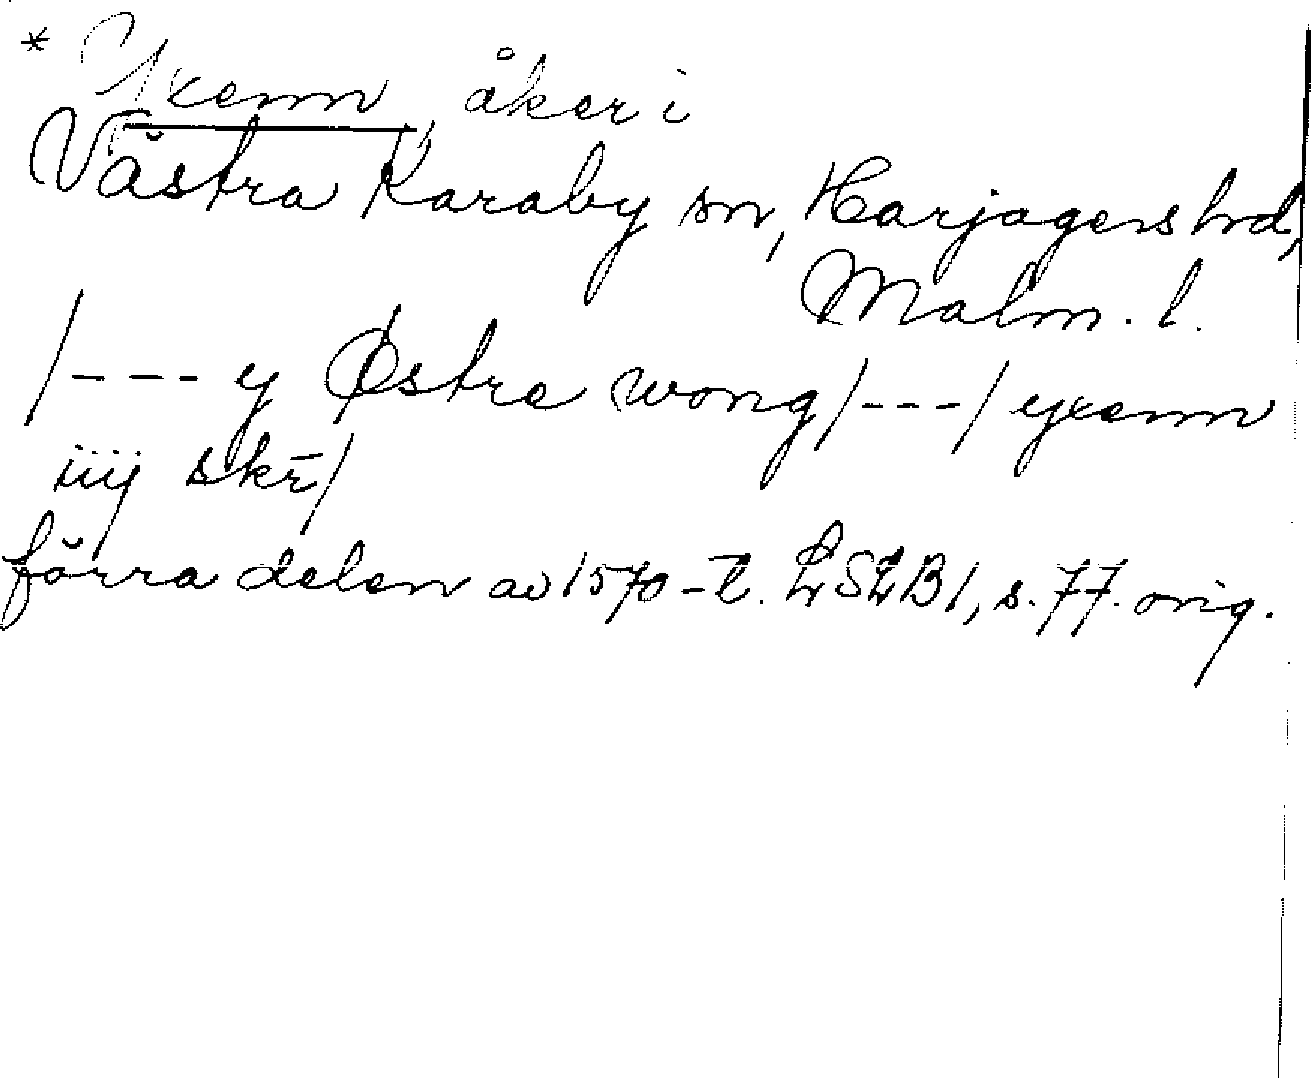 * Yxenn, åker i
Västra Karaby sn, Harjagers hd,
Malm. l.
/--- y Østre wong/---/ yxenn
iiij skr̄/
förra delen av 1570-t. LSLB1, s. 77. orig.